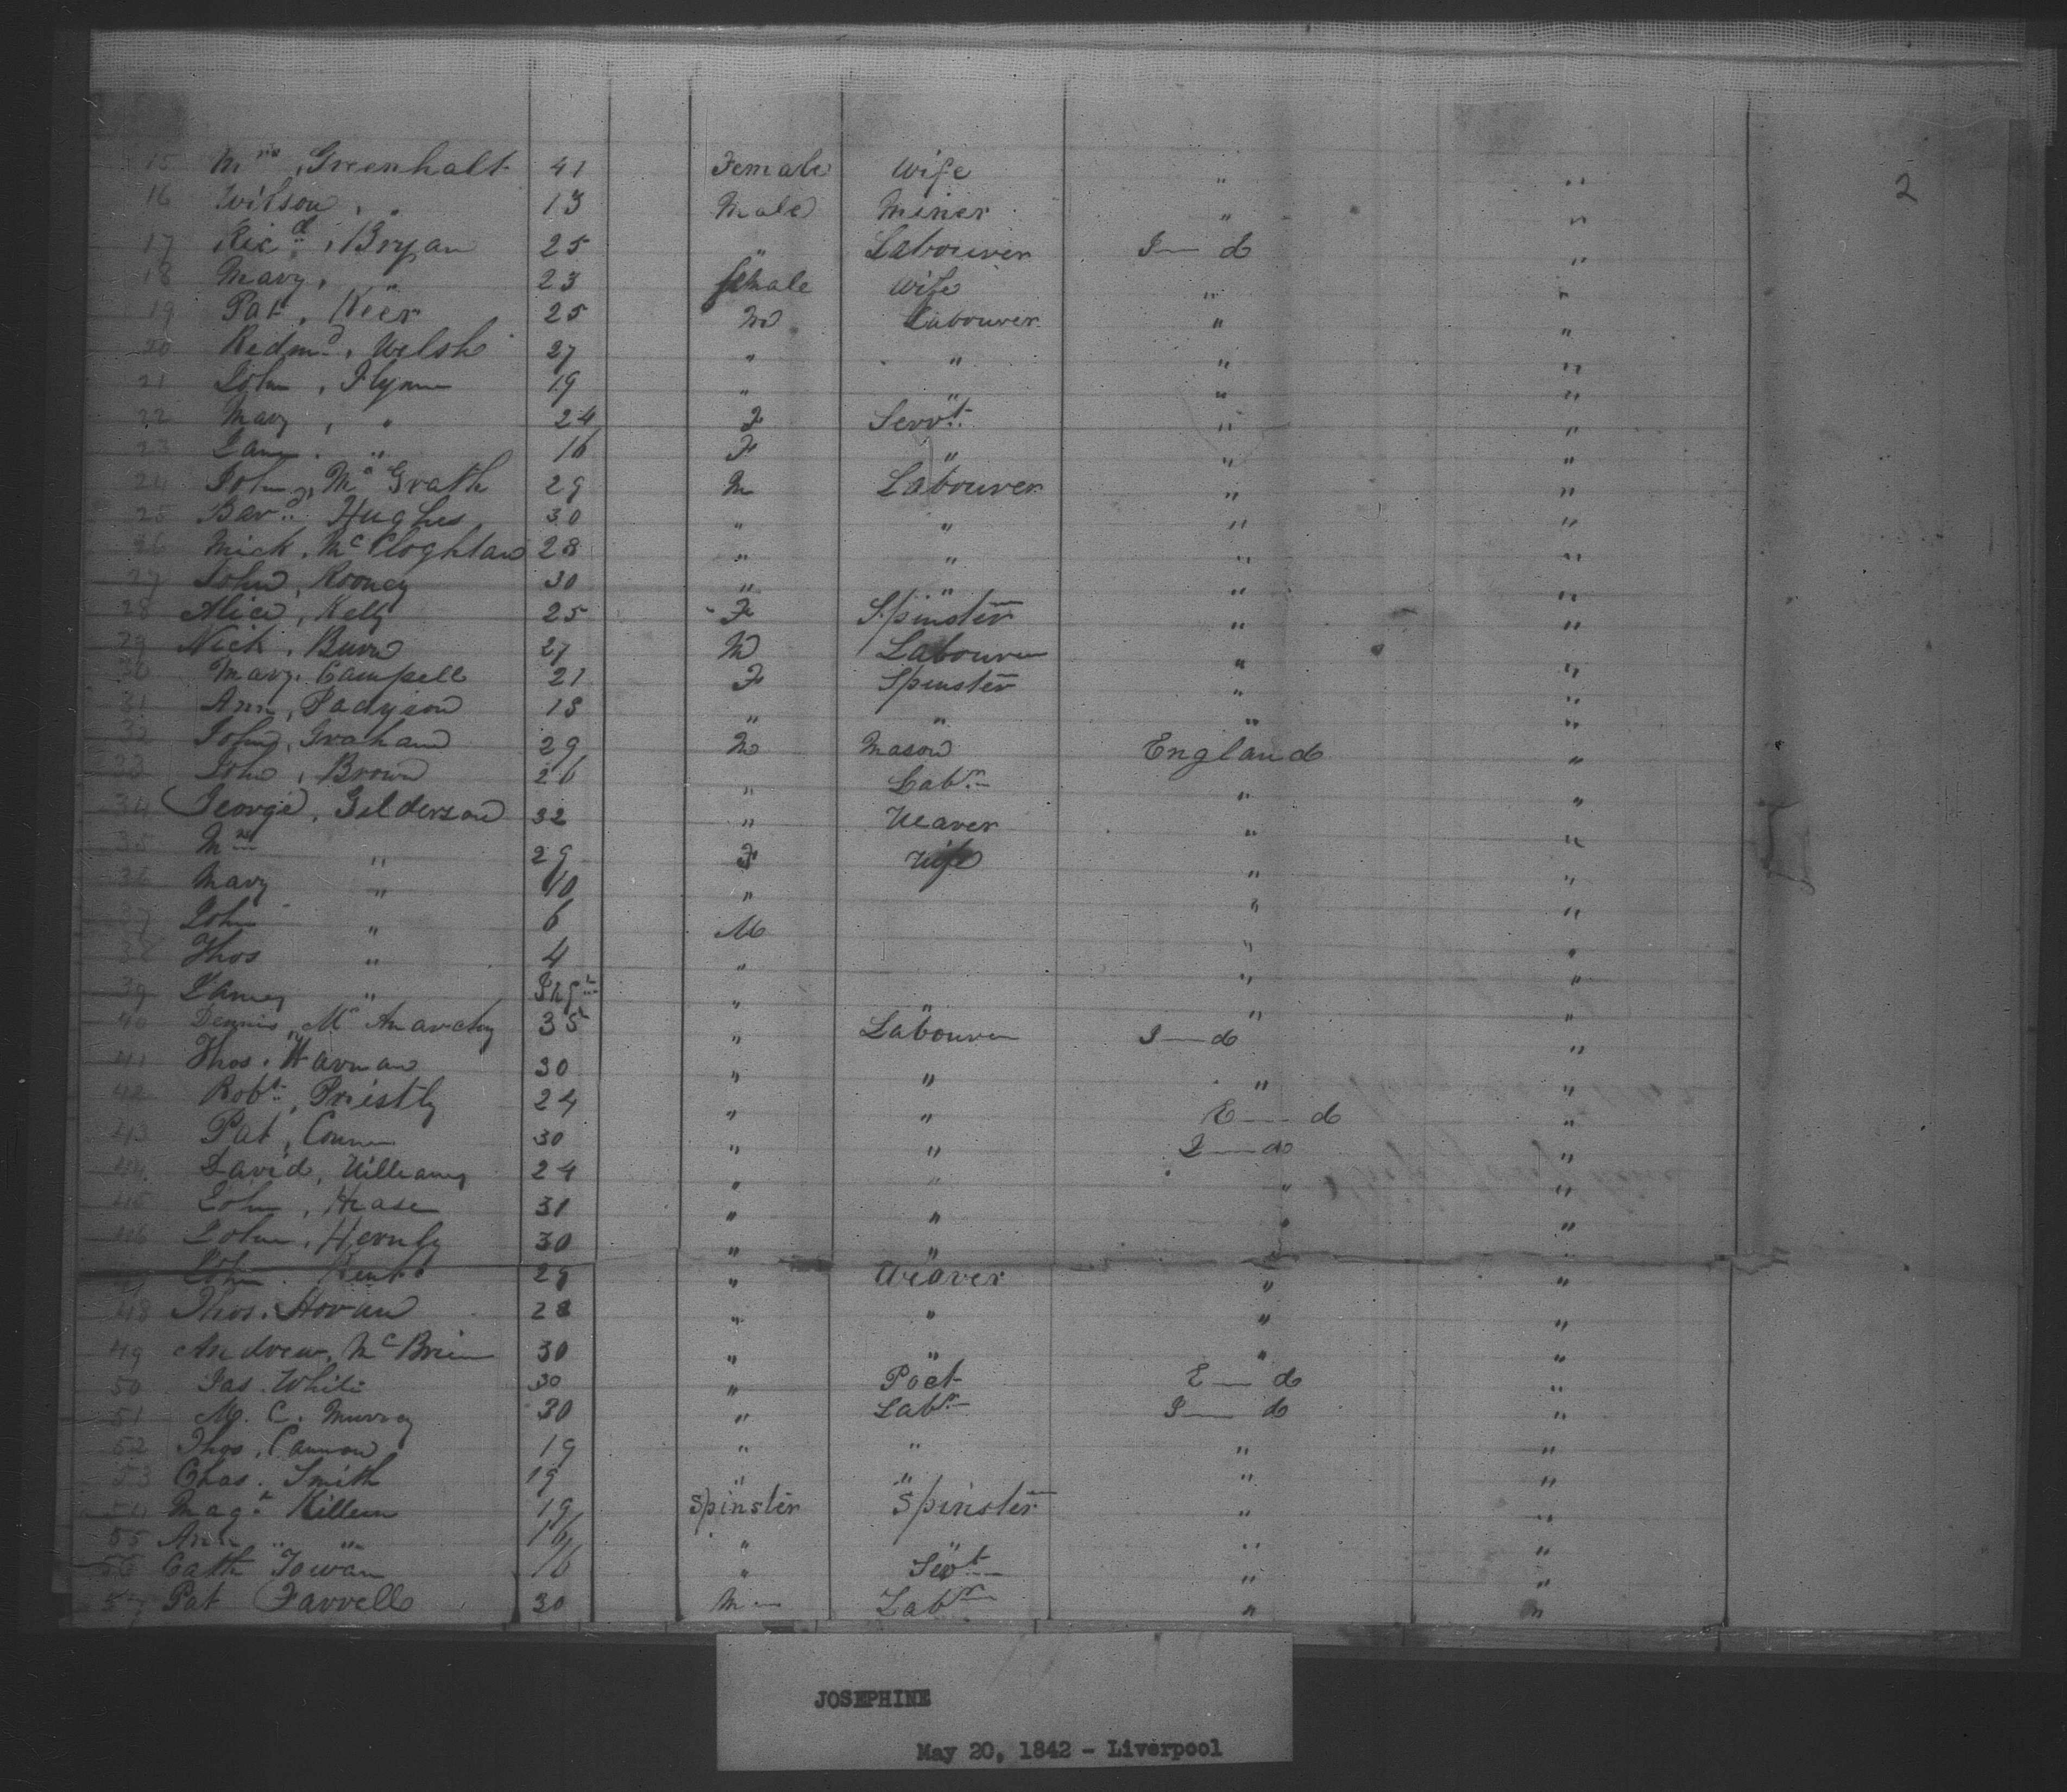 2
15 Mrs, Greenhalt 41 Female Wife " "
16 Wilson, " 13 Male Miner " "
17 Ricd, Bryan 25 " Labourer I—d "
18 Mary, " 23 female Wife " "
19 Pat, Kier 25 M Labourer " "
20 Redmd, Welsh 27 " " " "
21 John, Flynn 19 " " "
22 Mary, " 24 F Servt " "
23 Jane, " 16 F " " "
24 John, Mc Grath 29 M Labourer " "
25 Bard Hughes 30 " " " "
26 Mick, Mc Cloghlan 28 " " " "
27 John, Rooney 30 " " " "
28 Alice, Kelly 25 F Spinster " "
29 Nick, Burn 27 M Labourer " "
30 Mary, Campell 21 F Spinster " "
31 Ann, 18 " " " "
32 John, Graham 29 M Mason England "
33 John, Brown 26 " Labr " "
34 George, Gilderson 32 " Weaver " "
35 Mrs " 29 F Wife " "
36 Mary " 10 " " "
37 John " 6 M " "
38 Thos " 4 " " "
39 James " " " "
40 Dennis, Mc 35 " Labourer I—d "
41 Thos, Harman 30 " " " "
42 Robt, Priestly 24 " " E—d "
43 Pat, 30 " " I—d "
44 David, Williams 24 " " " "
45 John, 31 " " " "
46 John, 30 " " " "
47 John, Kent 29 " Weaver " "
48 Thos. Horan 28 " " " "
49 Andrew, Mc Brien 30 " " " "
50 Jas. White 30 " Poet E—d "
51 M. C. Murray 30 " Labr I—d "
52 Thos, Cannon 19 " " " "
53 Chas. Smith 19 " " " "
54 Magt Killen 19 Spinster Spinster " "
55 Ann " 16 " " " "
56 Cath 16 " Servt " "
57 Pat Farrell 30 M Labr " "
JOSEPHINE
May 20, 1842 - Liverpool